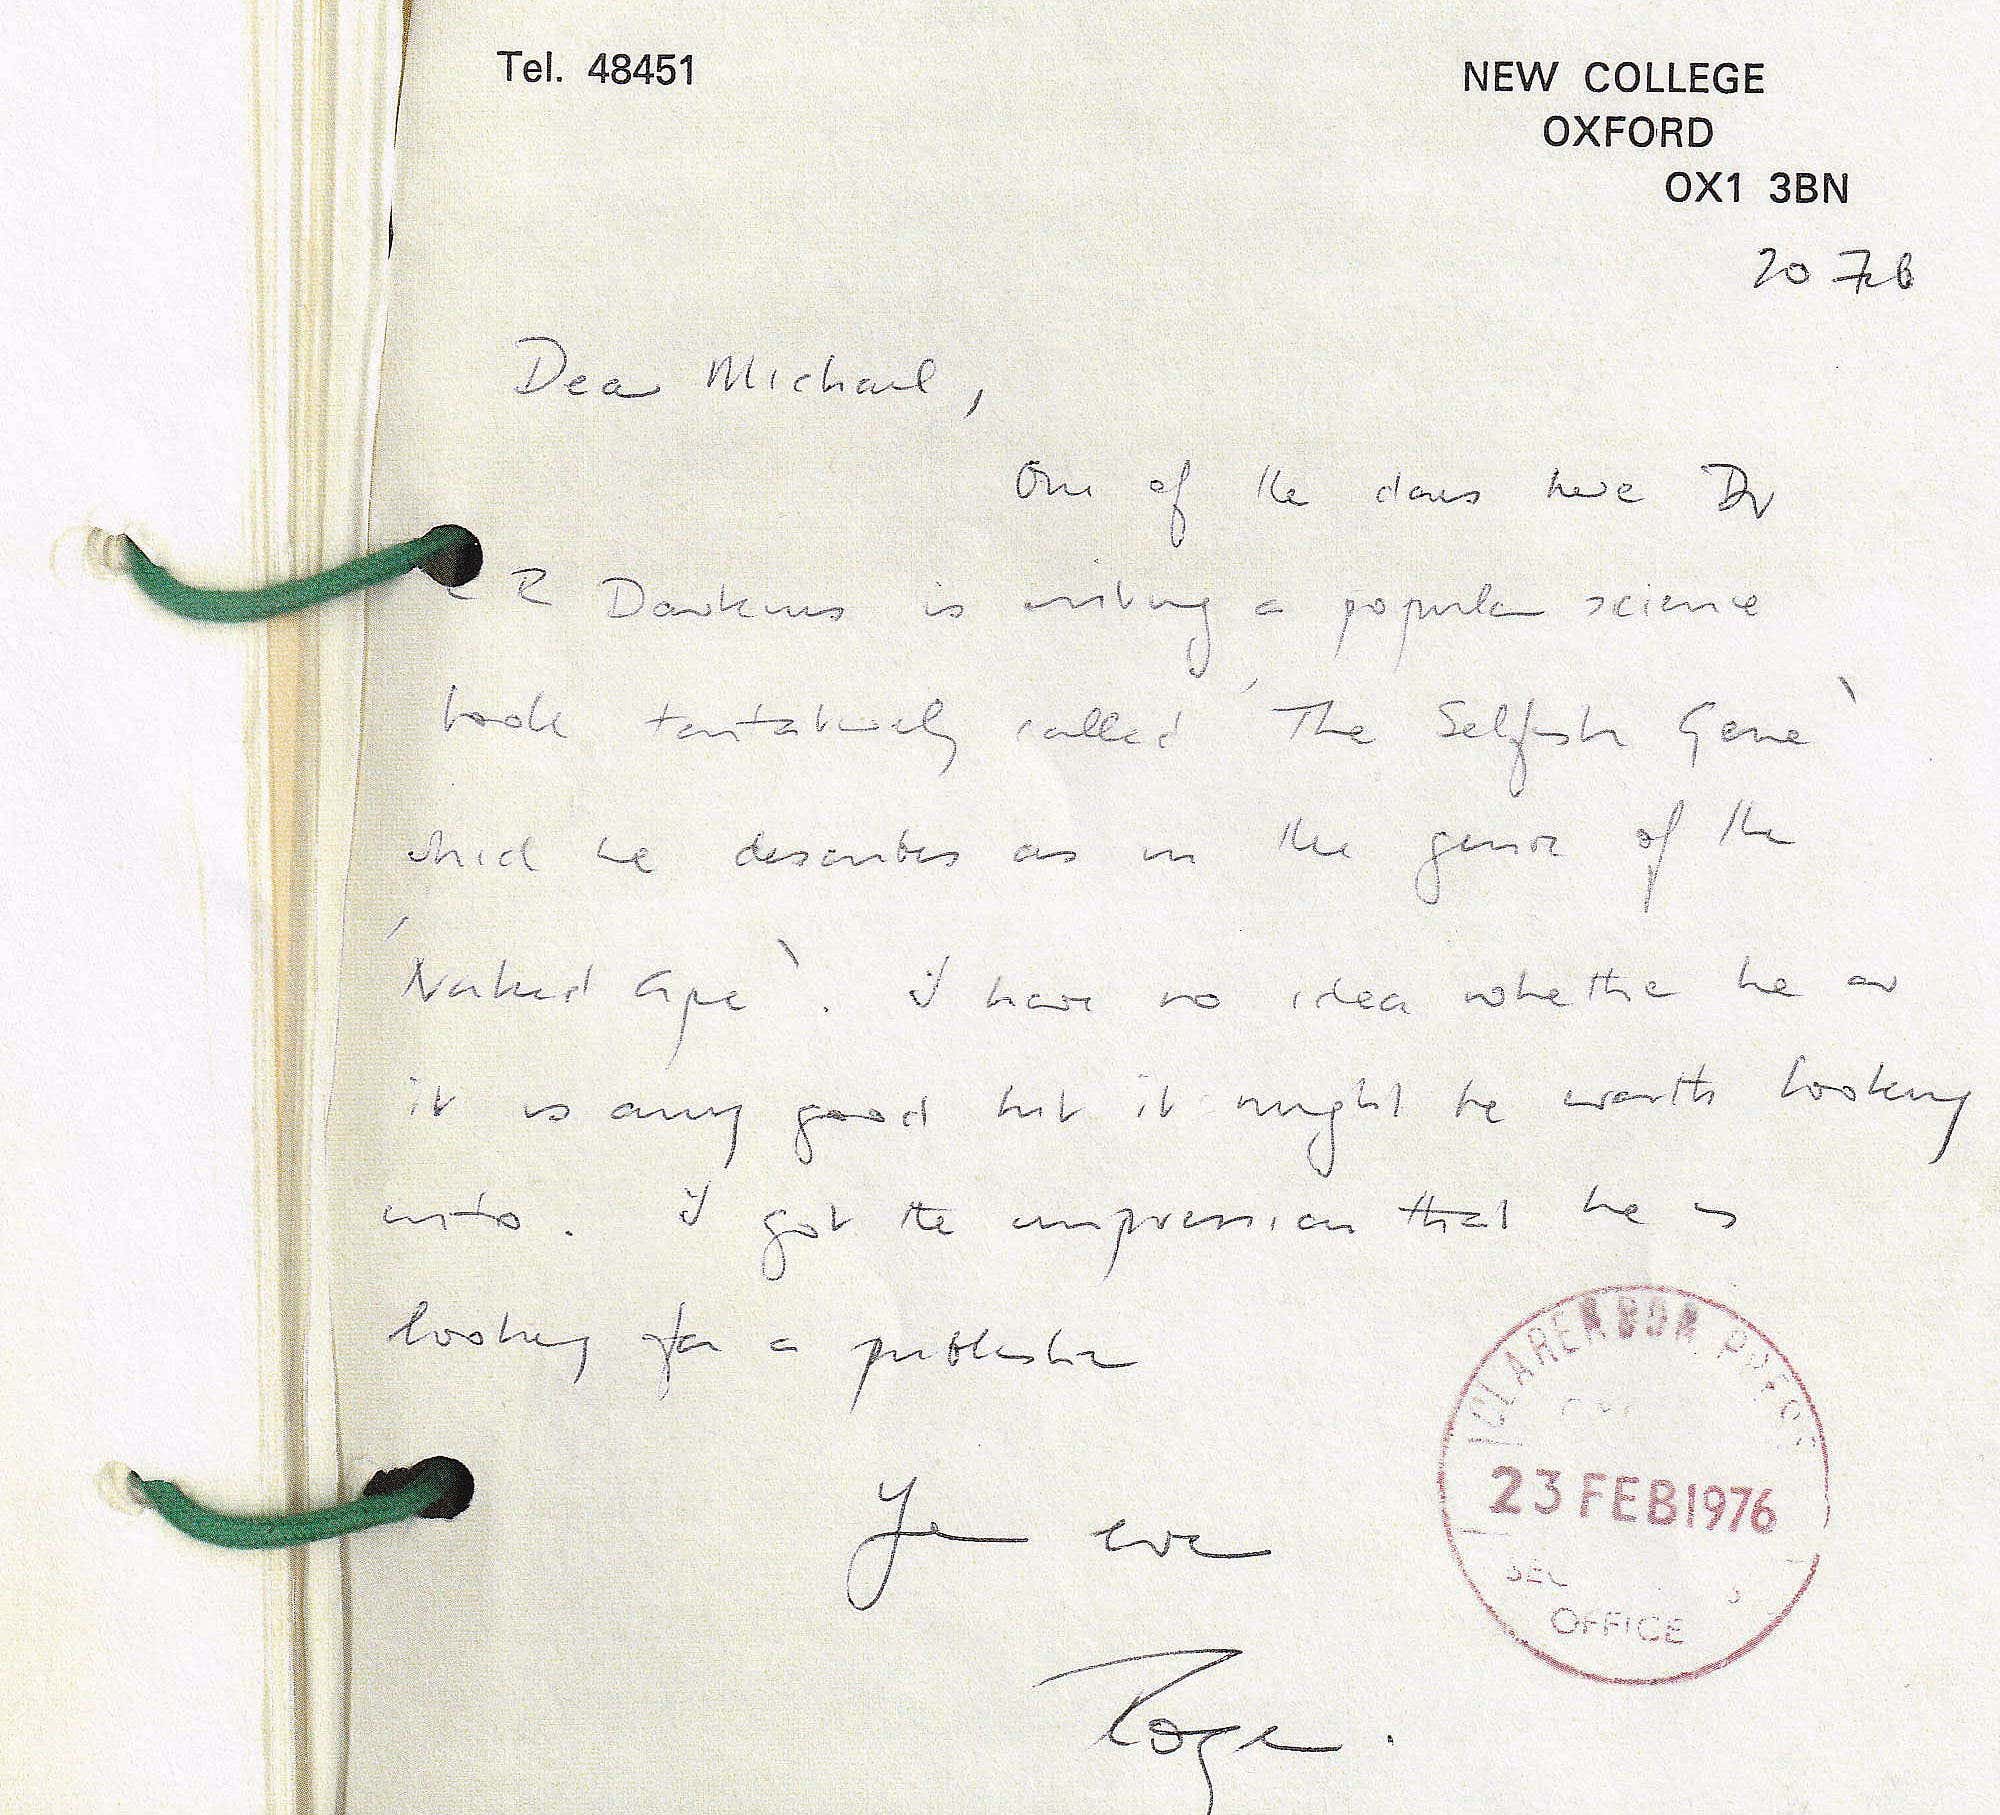 Tel. 48451
NEW COLLEGE
OXFORD
OX1 3BN
20 Feb
Dear Michael,
One of the dons here Dr
R Dawkins is writing a popular science
book tentatively called 'The Selfish Gene'
which he describes as in the genre of the
'Naked Ape'. I have no idea whether he or
it is any good but it might be worth looking
into. I got the impression that he is
looking for a publisher
Yrs ever
Roger.
CLARENDON PRESS
23 FEB 1976
OFFICE